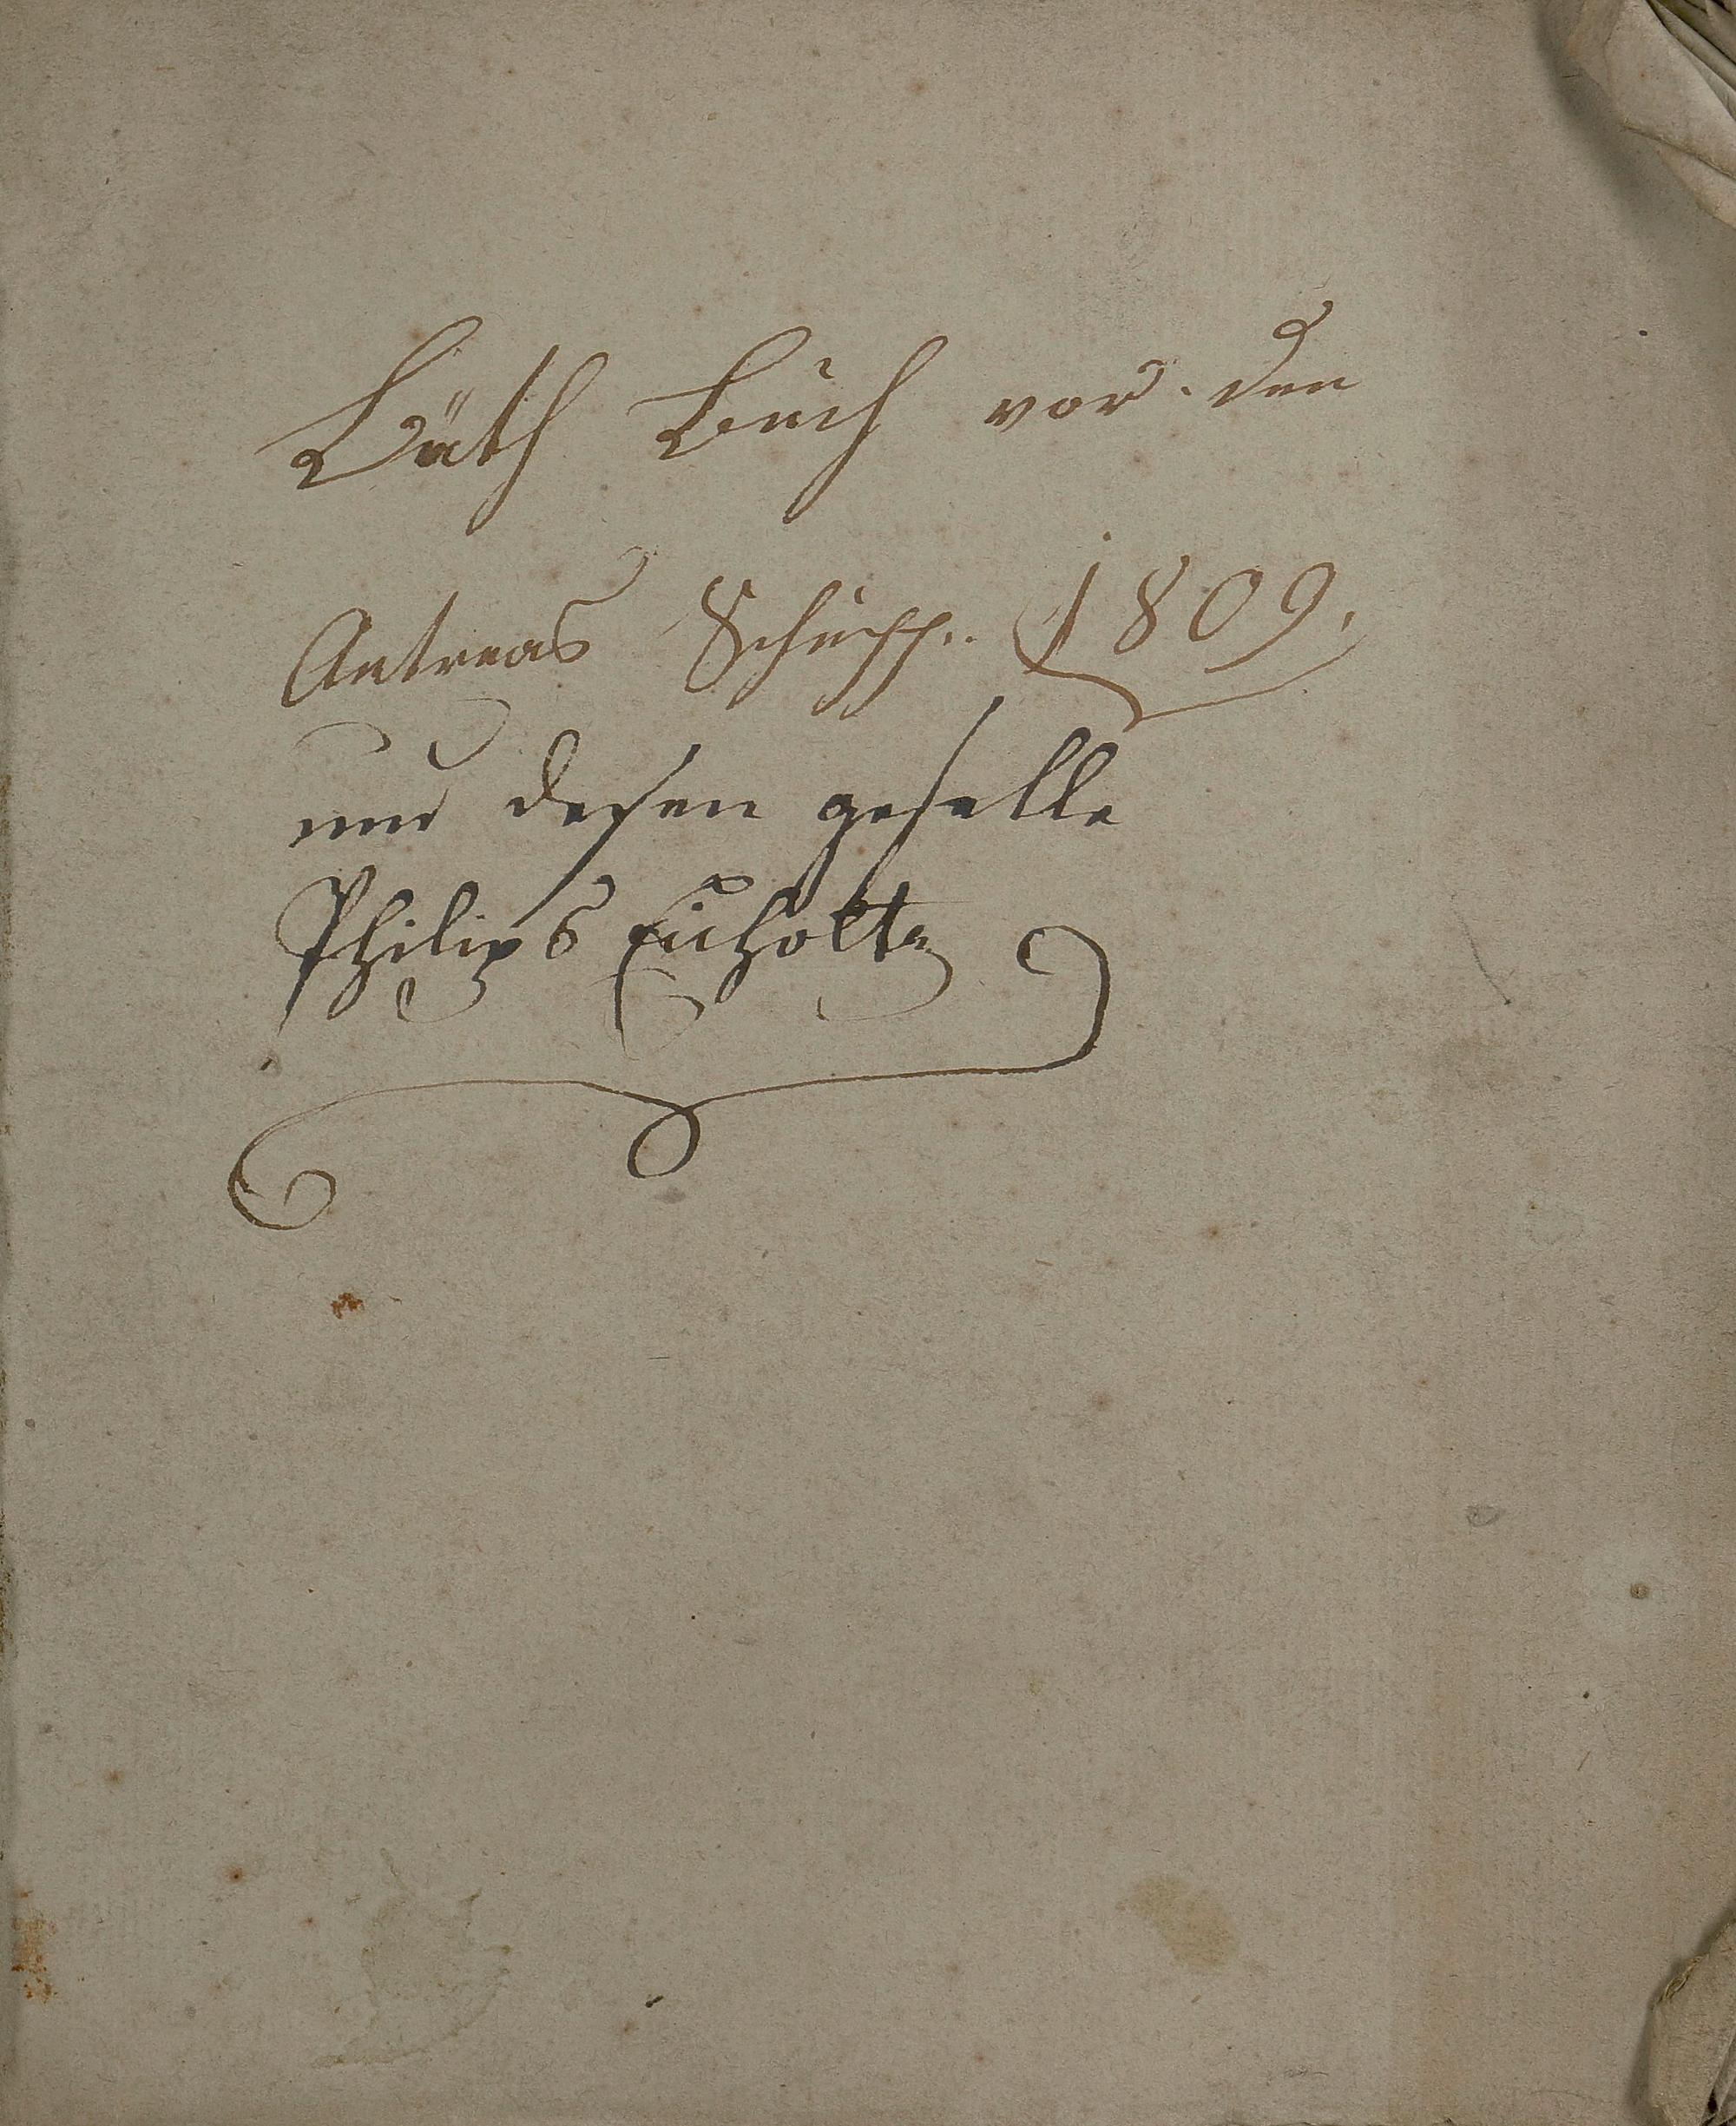 Bäth Buch vor den
Antreas Schupp.. 1809.
und desen geselle
Philips Eicholtz